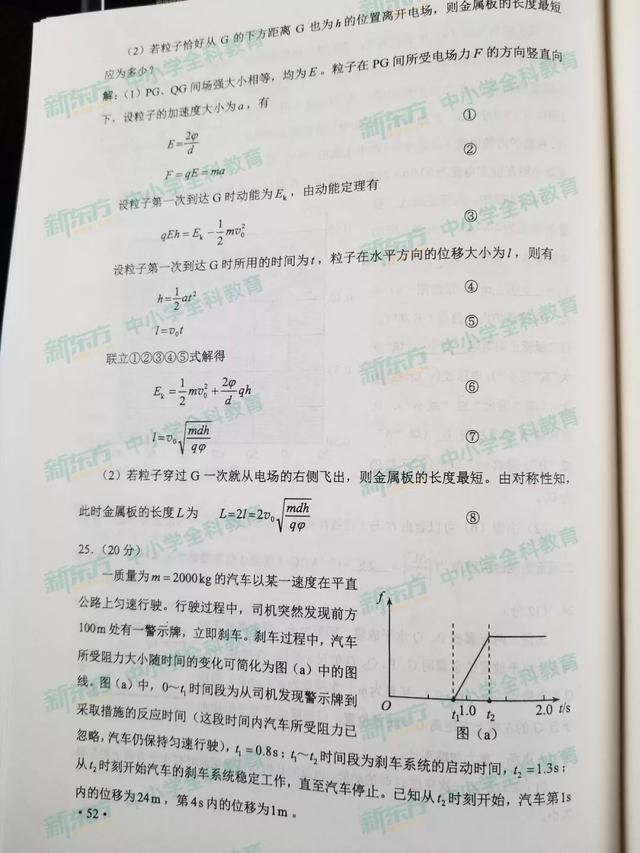 (2) 若粒子恰好从 G 的下方距离 G 也为 h 的位置离开电场，则金属板的长度最短
应为多少？
解：(1) PG、QG 间场强大小相等，均为 E 。粒子在 PG 间所受电场力 F 的方向竖直向
下，设粒子的加速度大小为 a ，有
E=2φ/d ①
F=qE=ma ②
设粒子第一次到达 G 时动能为 Eₖ ，由动能定理有
qEh=Eₖ-1/2mv₀² ③
设粒子第一次到达 G 时所用的时间为 t ，粒子在水平方向的位移大小为 l ，则有
h=1/2at² ④
l=v₀t ⑤
联立①②③④⑤式解得
Eₖ=1/2mv₀²+2φ/d qh ⑥
l=v₀√(mdh/qφ) ⑦
(2) 若粒子穿过 G 一次就从电场的右侧飞出，则金属板的长度最短。由对称性知，
此时金属板的长度 L 为 L=2l=2v₀√(mdh/qφ) ⑧
25．(20 分)
一质量为 m=2000kg 的汽车以某一速度在平直
公路上匀速行驶。行驶过程中，司机突然发现前方
100m 处有一警示牌，立即刹车。刹车过程中，汽车
所受阻力大小随时间的变化可简化为图（a）中的图
线。图（a）中，0～t₁ 时间段为从司机发现警示牌到
采取措施的反应时间（这段时间内汽车所受阻力已
忽略，汽车仍保持匀速行驶），t₁=0.8s；t₁～t₂ 时间段为刹车系统的启动时间，t₂=1.3s；
从 t₂ 时刻开始汽车的刹车系统稳定工作，直至汽车停止。已知从 t₂ 时刻开始，汽车第1s
内的位移为24m，第4s 内的位移为1m 。
f
O t₁ 1.0 t₂ 2.0 t/s
图（a）
·52·
新东方 中小学全科教育
新东方 中小学全科教育
新东方 中小学全科教育
新东方 中小学全科教育
新东方 中小学全科教育
新东方 中小学全科教育
新东方 中小学全科教育
新东方 中小学全科教育
新东方 中小学全科教育
新东方 中小学全科教育
新东方 中小学全科教育
新东方 中小学全科教育